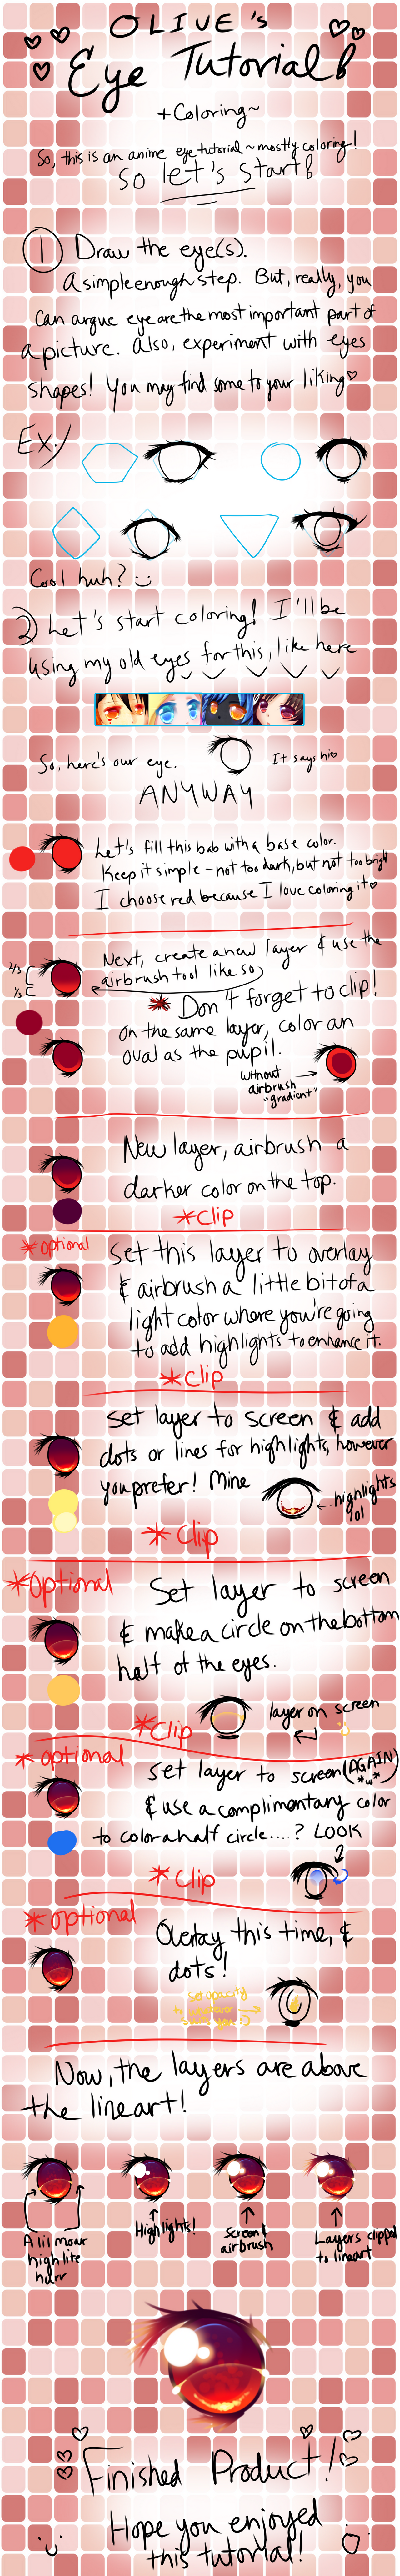 OLIVE's
Eye Tutorial!
+Coloring~
So, this is an anime eye tutorial~mostly coloring!
So let's start!
1 Draw the eye(s).
A simple enough step. But, really, you
can argue eye are the most important part of
a picture. Also, experiment with eyes
shapes! You may find some to your liking♡
Ex/
Cool huh? :)
2) Let's start coloring! I'll be
using my old eyes for this, like here
So, here's our eye.
It says hi♡
ANYWAY
Let's fill this bab with a base color.
Keep it simple - not too dark, but not too bright
I choose red because I love coloring it♡
2/3
1/3
Next, create a new layer & use the
airbrush tool like so
* Don't forget to clip!
On the same layer, color an
oval as the pupil.
without
airbrush
"gradient"
New layer, airbrush a
darker color on the top.
*Clip
*optional
Set this layer to overlay
& airbrush a little bit of a
light color where you're going
to add highlights to enhance it.
*Clip
Set layer to screen & add
dots or lines for highlights, however
you prefer! Mine
highlights
lol
*Clip
*Optional
Set layer to screen
& make a circle on the bottom
half of the eyes.
layer on screen
*Clip
*optional
Set layer to screen (AGAIN)
*w*
& use a complimentary color
to color a half circle....? LOOK
*Clip
*optional
Overlay this time, &
dots!
Set opacity
to whatever
suits you :)
Now, the layers are above
the lineart!
A lil moar
highlite
hurr
Highlights!
Screen &
airbrush
Layers clipped
to lineart
Finished Product!
Hope you enjoyed
this tutorial!